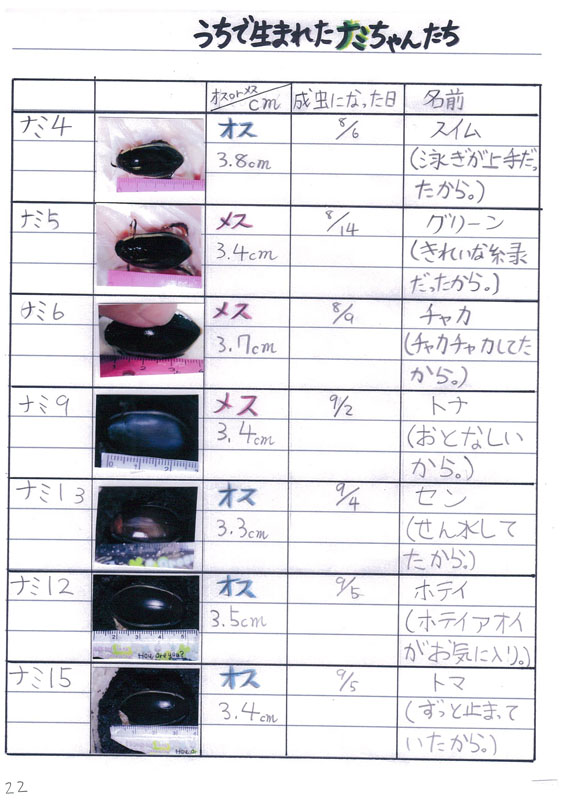 うちで生まれたナミちゃんたち
オスorメス cm 成虫になった日 名前
ナミ4 オス 8/6 スイム
3.8cm (泳ぎが上手だっ
たから。)
ナミ5 メス 8/14 グリーン
3.4cm (きれいな緑
だったから。)
ナミ6 メス 8/9 チャカ
3.7cm (チャカチャカしてた
から。)
ナミ9 メス 9/2 トナ
3.4cm (おとなしい
から。)
ナミ13 オス 9/4 セン
3.3cm (せん水して
たから。)
ナミ12 オス 9/5 ホテイ
3.5cm (ホテイアオイ
がお気に入り。)
How are you?
ナミ15 オス 9/5 トマ
3.4cm (ずっと止まって
いたから。)
22